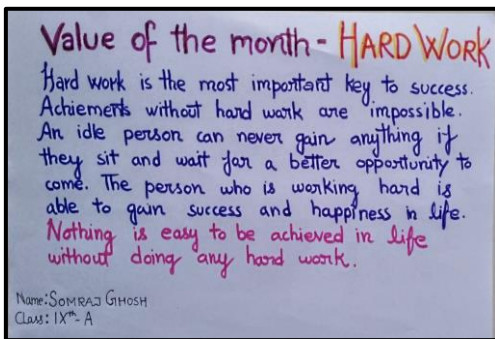 Value of the month - HARD WORK
Hard work is the most important key to success.
Achiements without hard work are impossible.
An idle person can never gain anything if
they sit and wait for a better opportunity to
come. The person who is working hard is
able to gain success and happiness in life.
Nothing is easy to be achieved in life
without doing any hard work.
Name: SOMRAJ GHOSH
Class: IXth - A